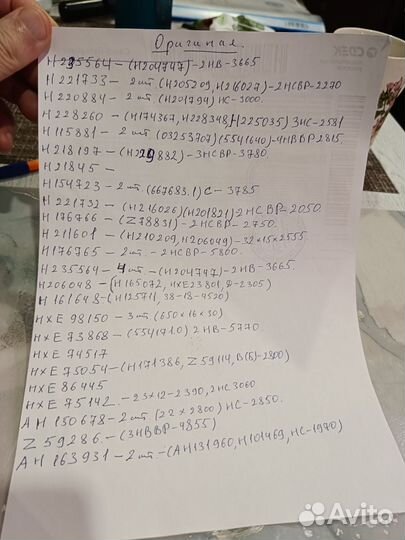 CDEK
Оригинал
H235564-(H204747)-2HB-3665
H221733-2шт.(H205209,H216027)-2HCBP-2270
H220884-2шт.(H201794)HC-3000.
H228260-(H174367,H228348,H225035)3HC-2581
H115881-2шт.(03253707)(5541640)-4HBBP2815.
H218197-(H219882)-3HCBP-3780.
H21845-
H154723-2шт.(667683.1)C-3785
H221732-(H216026)(H201821)2HCBP-2050.
H176766-(Z78831)-2HCBP-2750.
H211601-(H210209,H206049)-32×15×2555.
H176765-2шт.-2HCBP-5800.
H235564-4шт-(H204747)-2HB-3665.
H206048-(H165072,HXE23801,Ф-2305)
H161648-(H125711,38-18-4520)
HXE98150-3шт(650×16×30)
HXE73868-(554171.0)2HB-5770.
HXE74517
HXE75054-(H171386,Z59114,В(Б)-2800)
HXE86445
HXE75142.-23×12-2390,2HC3060
AH150678-2шт(22×2800)HC-2850.
Z59286.-(3HBBP-4855)
AH163931-2шт-(AH131960,H101469,HC-1970)
Avito